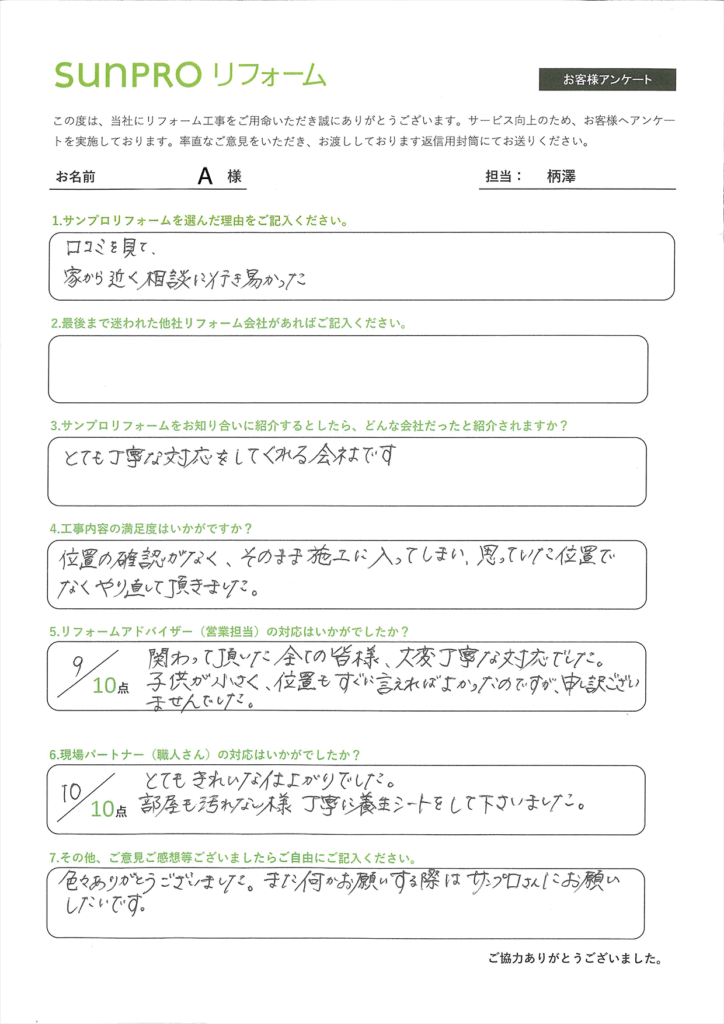 SUNPRO リフォーム
お客様アンケート
この度は、当社にリフォーム工事をご用命いただき誠にありがとうございます。サービス向上のため、お客様へアンケー
トを実施しております。率直なご意見をいただき、お渡ししております返信用封筒にてお送りください。
お名前 A 様 担当： 柄澤
1.サンプロリフォームを選んだ理由をご記入ください。
口コミを見て、
家から近く相談に行き易かった
2.最後まで迷われた他社リフォーム会社があればご記入ください。
3.サンプロリフォームをお知り合いに紹介するとしたら、どんな会社だったと紹介されますか？
とても丁寧な対応をしてくれる会社です
4.工事内容の満足度はいかがですか？
位置の確認がなく、そのまま施工に入ってしまい、思っていた位置で
なくやり直して頂きました。
5.リフォームアドバイザー（営業担当）の対応はいかがでしたか？
9/10点
関わって頂いた全ての皆様、大変丁寧な対応でした。
子供が小さく、位置もすぐに言えればよかったのですが、申し訳ござい
ませんでした。
6.現場パートナー（職人さん）の対応はいかがでしたか？
10/10点
とてもきれいな仕上がりでした。
部屋も汚れない様丁寧に養生シートをして下さいました。
7.その他、ご意見ご感想等ございましたらご自由にご記入ください。
色々ありがとうございました。また何かお願いする際はサンプロさんにお願い
したいです。
ご協力ありがとうございました。